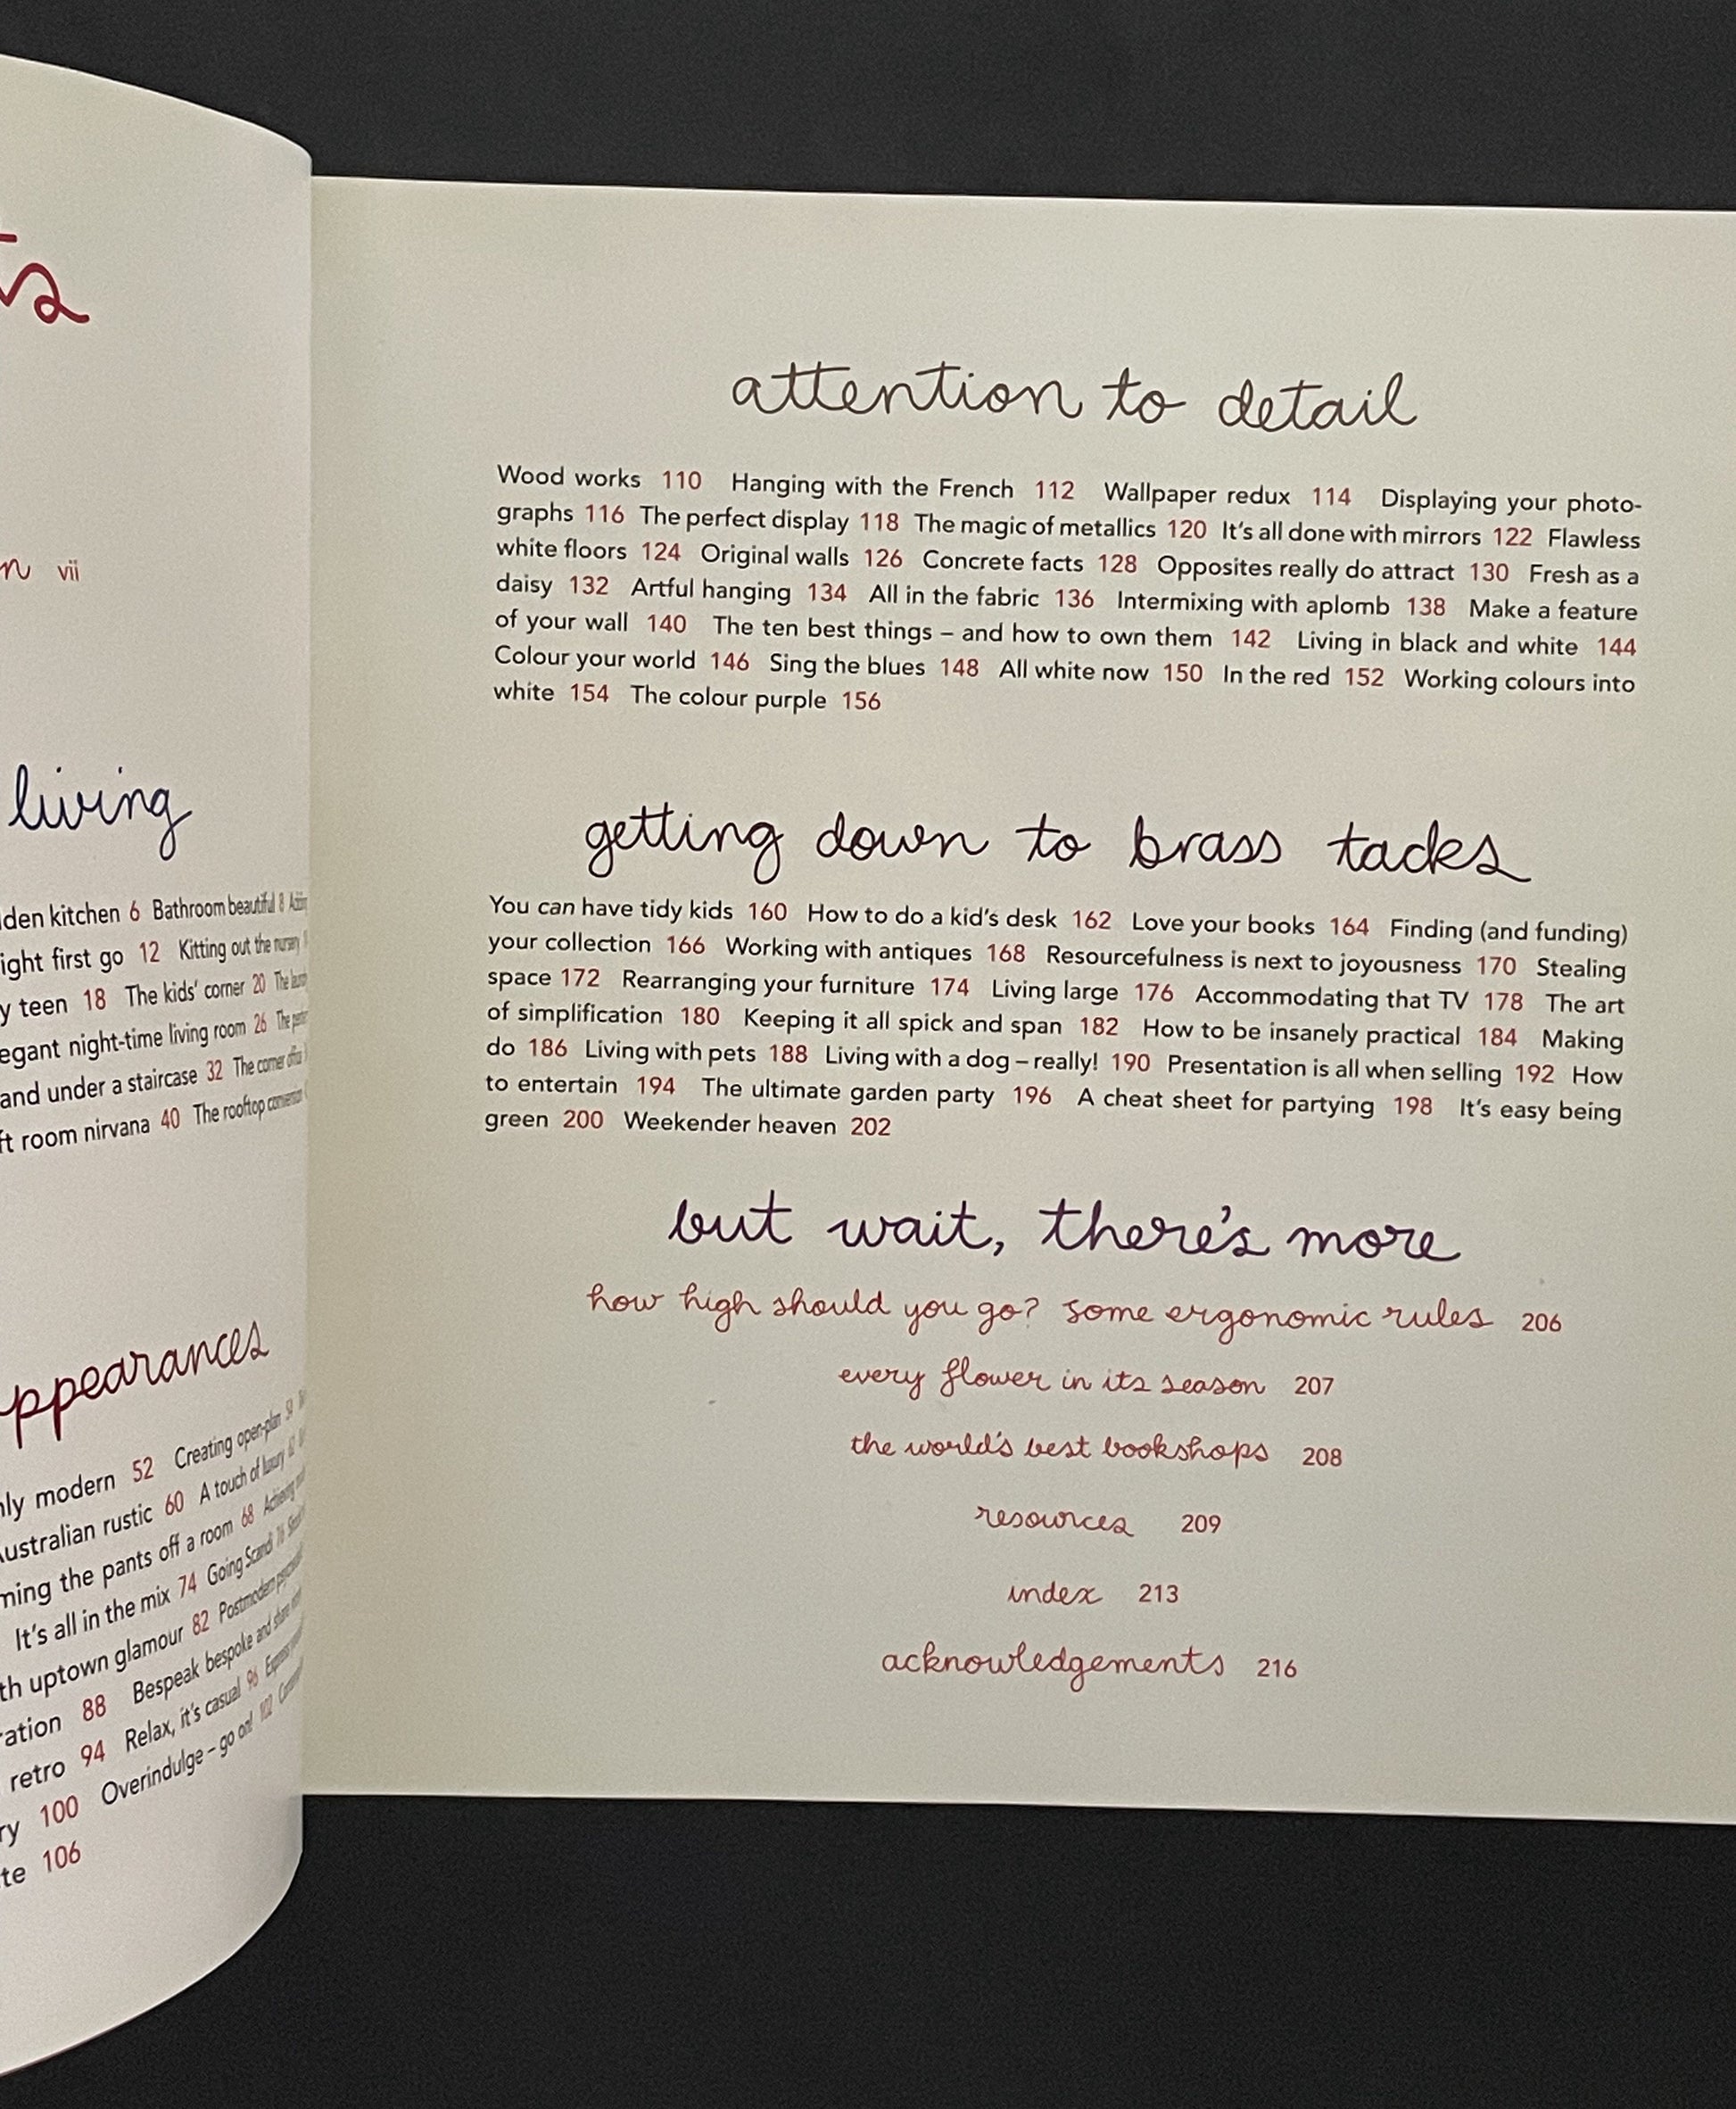 vii
living
kitchen 6 Bathroom beautiful 8
first go 12 Kitting out the nursery
teen 18 The kids' corner 20 The
night-time living room 26 The
and under a staircase 32 The corner office
room nirvana 40 The rooftop
modern 52 Creating open-plan
rustic 60 A touch of luxury
the pants off a room 68 Achieving
It's all in the mix 74 Going Scandi 76
uptown glamour 82 Postmodern
88 Bespeak bespoke and
retro 94 Relax, it's casual 96
100 Overindulge – go on! 102
106
attention to detail
Wood works 110 Hanging with the French 112 Wallpaper redux 114 Displaying your photo-
graphs 116 The perfect display 118 The magic of metallics 120 It's all done with mirrors 122 Flawless
white floors 124 Original walls 126 Concrete facts 128 Opposites really do attract 130 Fresh as a
daisy 132 Artful hanging 134 All in the fabric 136 Intermixing with aplomb 138 Make a feature
of your wall 140 The ten best things – and how to own them 142 Living in black and white 144
Colour your world 146 Sing the blues 148 All white now 150 In the red 152 Working colours into
white 154 The colour purple 156
getting down to brass tacks
You can have tidy kids 160 How to do a kid's desk 162 Love your books 164 Finding (and funding)
your collection 166 Working with antiques 168 Resourcefulness is next to joyousness 170 Stealing
space 172 Rearranging your furniture 174 Living large 176 Accommodating that TV 178 The art
of simplification 180 Keeping it all spick and span 182 How to be insanely practical 184 Making
do 186 Living with pets 188 Living with a dog – really! 190 Presentation is all when selling 192 How
to entertain 194 The ultimate garden party 196 A cheat sheet for partying 198 It's easy being
green 200 Weekender heaven 202
but wait, there's more
how high should you go? some ergonomic rules 206
every flower in its season 207
the world's best bookshops 208
resources 209
index 213
acknowledgements 216